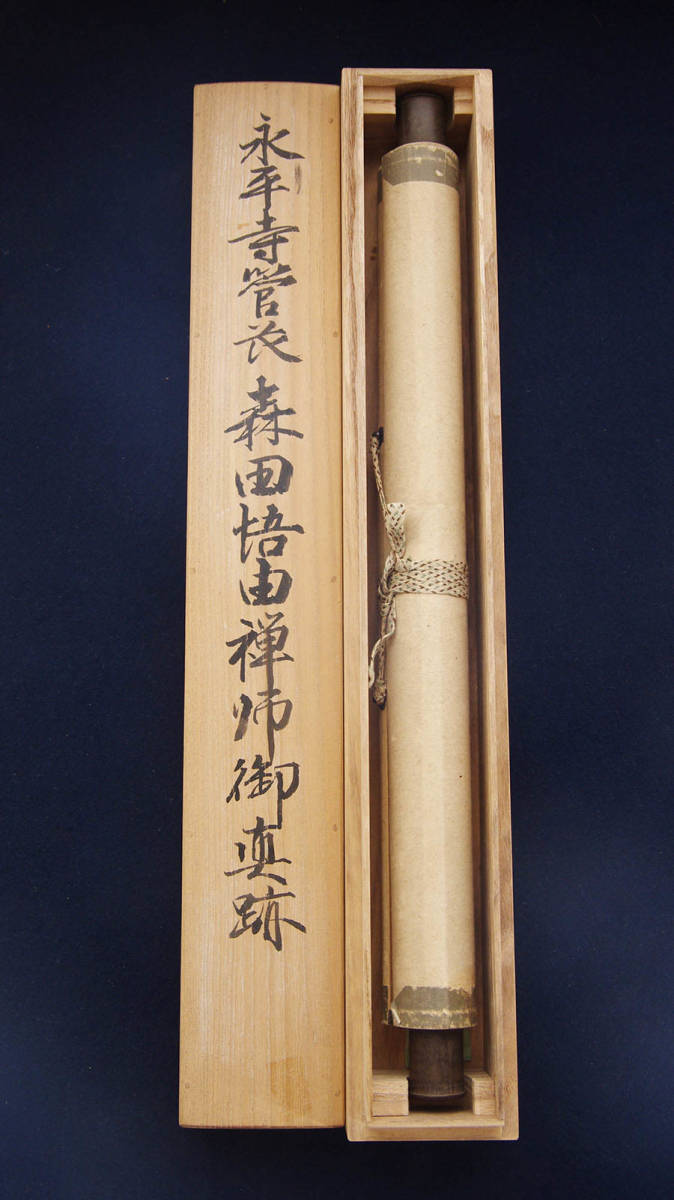 永平寺管長 森田悟由禅師御真跡